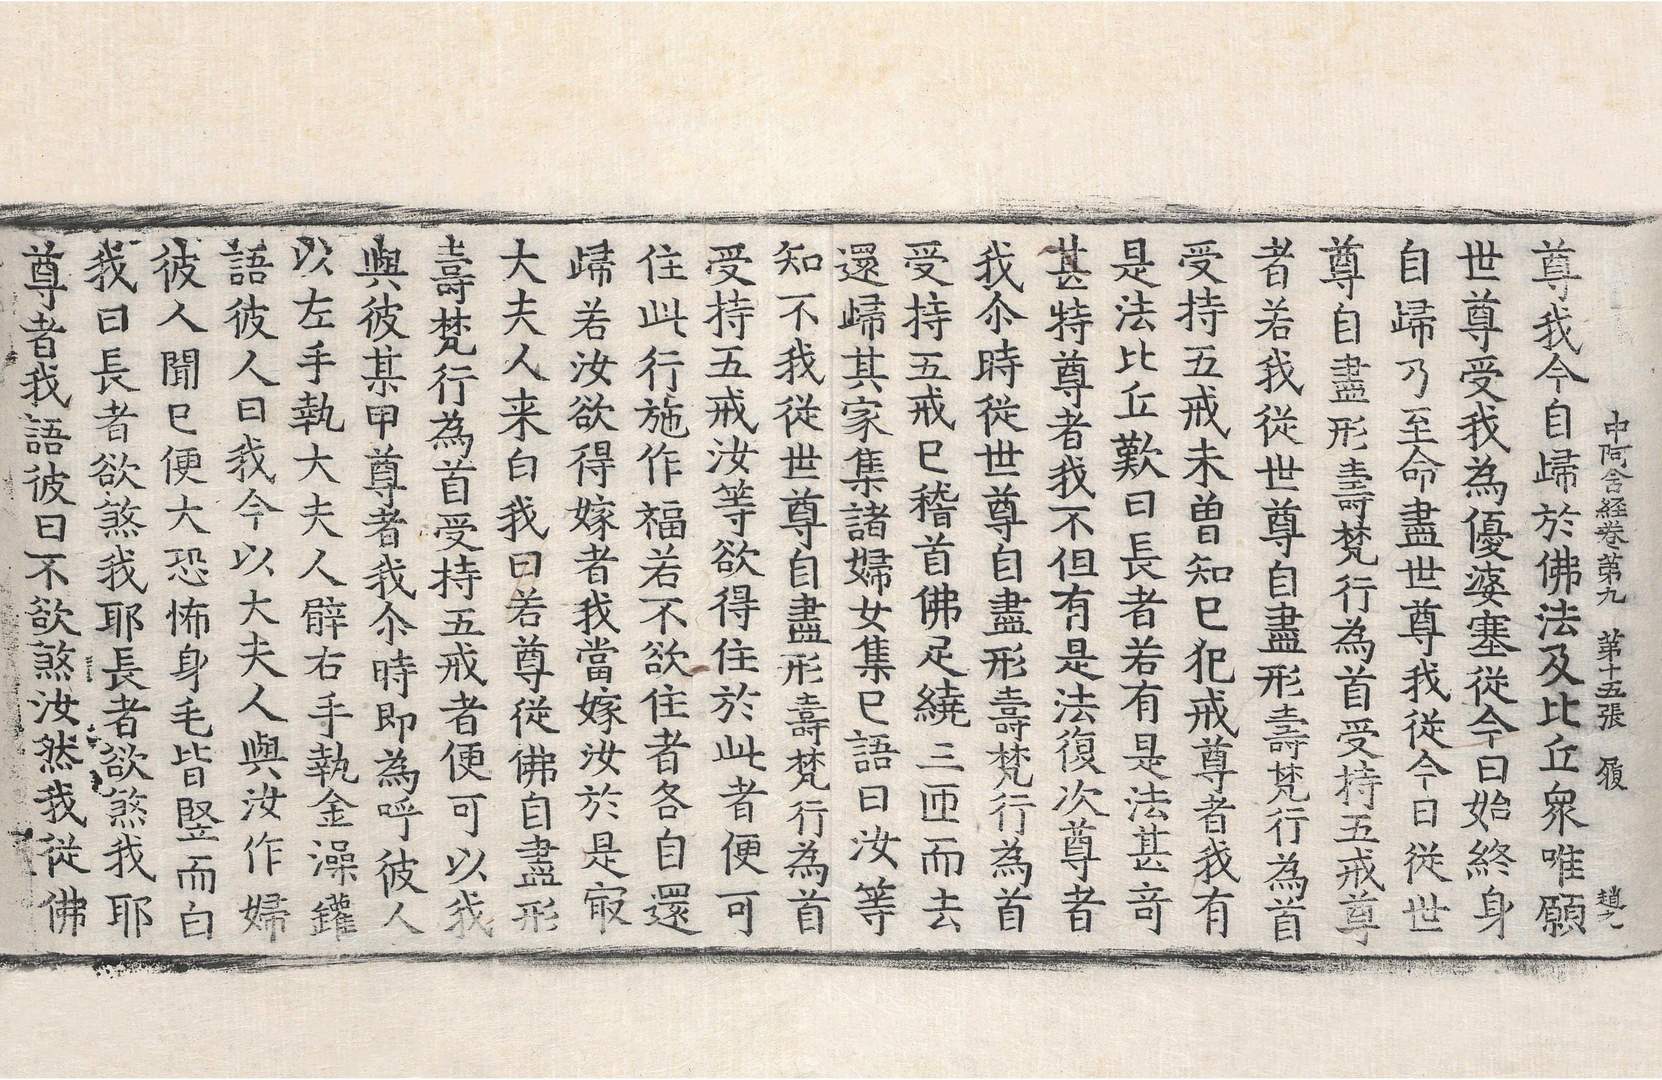 中阿含経卷第九　第十五張　履　趙九
尊我今自歸於佛法及比丘衆唯願
世尊受我為優婆塞従今日始終身
自歸乃至命盡世尊我従今日従世
尊自盡形壽梵行為首受持五戒尊
者若我従世尊自盡形壽梵行為首
受持五戒未曾知已犯戒尊者我有
是法比丘歎曰長者若有是法甚竒
甚特尊者我不但有是法復次尊者
我尒時従世尊自盡形壽梵行為首
受持五戒已稽首佛足繞三匝而去
還歸其家集諸婦女集已語曰汝等
知不我従世尊自盡形壽梵行為首
受持五戒汝等欲得住於此者便可
住此行施作福若不欲住者各自還
歸若汝欲得嫁者我當嫁汝於是㝡
大夫人来白我曰若尊従佛自盡形
壽梵行為首受持五戒者便可以我
與彼某甲尊者我尒時即為呼彼人
以左手執大夫人臂右手執金澡鑵
語彼人曰我今以大夫人與汝作婦
彼人聞已便大恐怖身毛皆竪而白
我曰長者欲煞我耶長者欲煞我耶
尊者我語彼曰不欲煞汝然我従佛